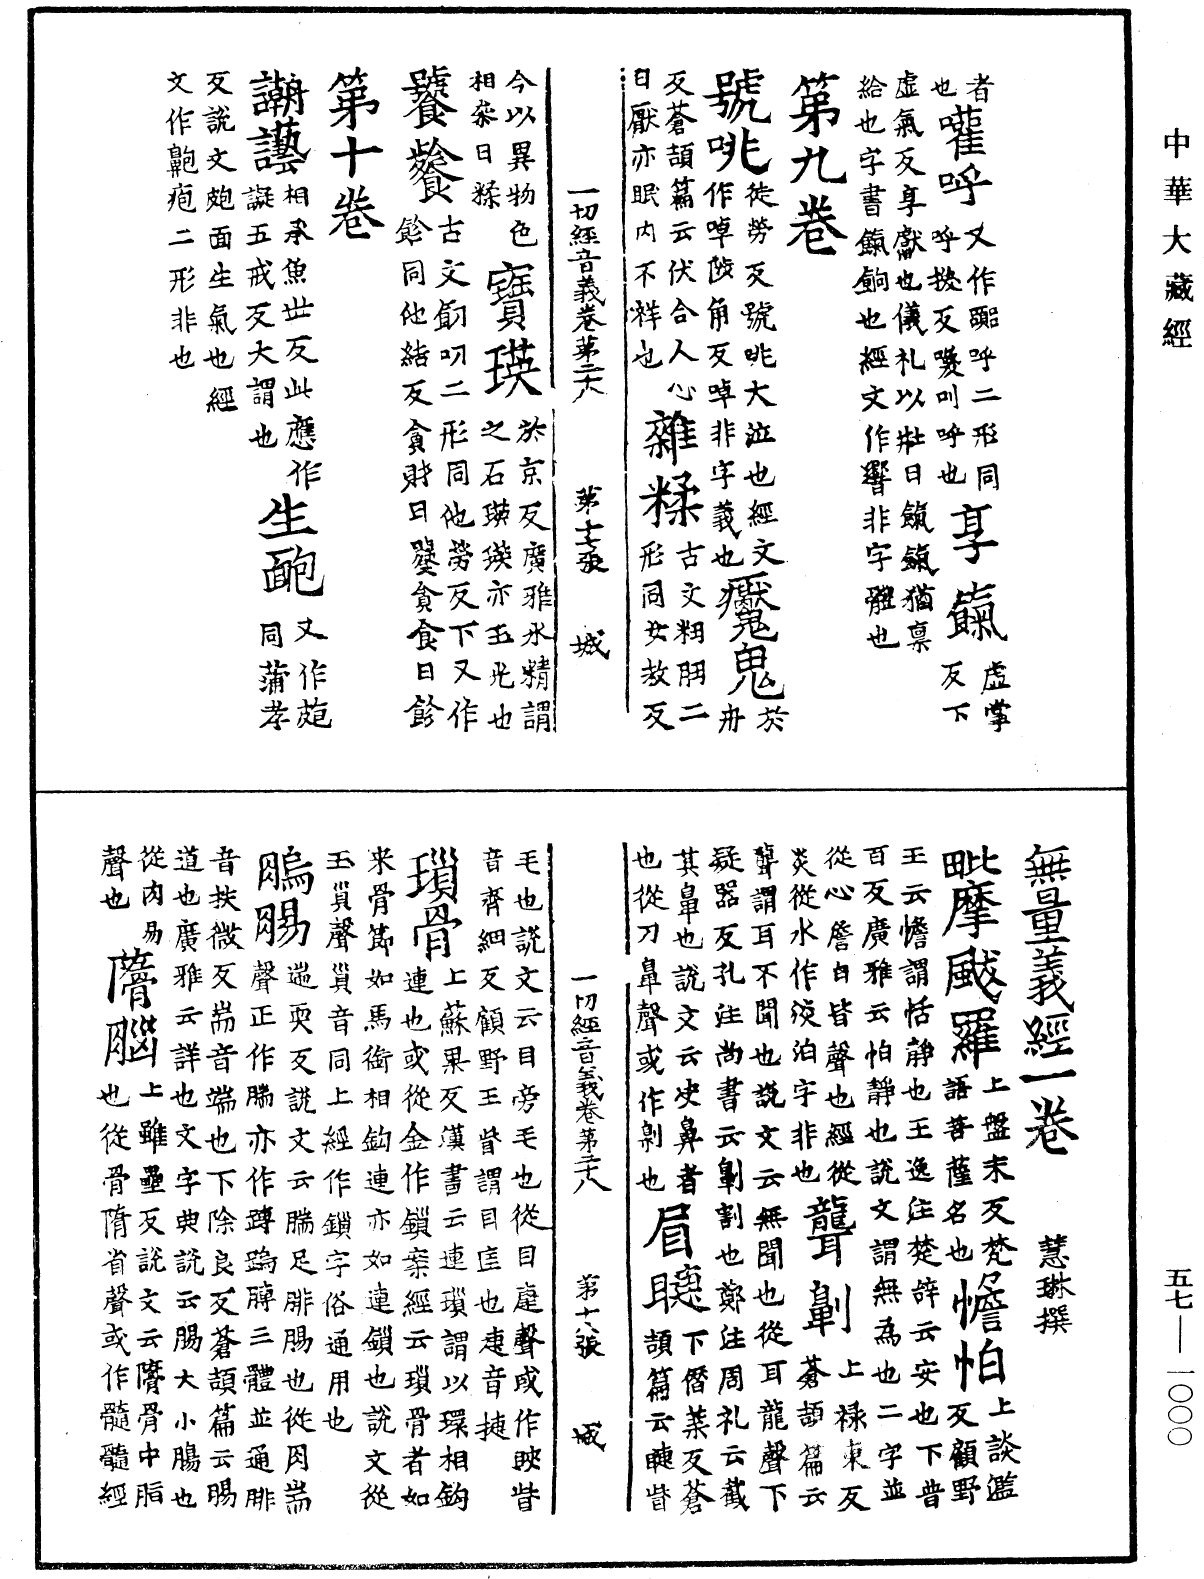 中華大藏經
者
也讙呼又作嚻呼二形同
呼換反讙叫呼也享餼虛掌反下
虛氣反享獻也儀礼以牲曰餼餼猶禀
給也字書餼餉也經文作響非字體也
第九卷
號咷徒勞反號咷大泣也經文
作啅陟角反啅非字義也魘鬼於冉
反蒼頡篇云伏合人心
曰厭亦眠内不祥也雜糅古文粈䏔二
形同女救反
一切經音義卷第二十八 第十七張 城
今以異物色
相桒曰糅寶瑛於京反廣雅水精謂
之石瑛瑛亦玉光也
饕餮古文飻叨二形同他勞反下又作
飻同他結反貪財曰饕貪食曰飻
第十卷
謿藝相承魚世反此應作
謺五戒反大謂也生皰又作皰
同蒲孝
反說文皰面生氣也經
文作䶌疱二形非也
無量義經一卷 慧琳撰
毗摩颰羅上盤末反梵
語菩薩名也憺怕上談濫反顧野
王云憺謂恬靜也王逸注楚辞云安也下普
百反廣雅云怕靜也說文謂無為也二字並
從心詹白皆聲也經從
炎從水作淡泊字非也聾劓上祿東反
蒼頡篇云
聾謂耳不聞也說文云無聞也從耳龍聲下
疑器反孔注尚書云劓割也鄭注周礼云截
其鼻也說文云決鼻者
也從刀鼻聲或作劓也眉睫下僭葉反蒼
頡篇云睫眥
一切經音義卷第二十八 第十八張 城
毛也說文云目旁毛也從目疌聲或作䀹眥
音齊細反顧野王眥謂目匡也疌音捷
瑣骨上蘇果反漢書云連瑣謂以環相鈎
連也或從金作鎖案經云瑣骨者如
来骨節如馬銜相鈎連亦如連鎖也說文從
玉𧴪聲𧴪音同上經作鎖字俗通用也
䏽腸遄耎反說文云腨足腓腸也從肉耑
聲正作腨亦作䠢䏽膞三體並通腓
音扶微反耑音端也下除良反蒼頡篇云腸
道也廣雅云詳也文字典說云腸大小腸也
從肉昜
聲也髓腦上雖壘反說文云髓骨中脂
也從骨隋省聲或作髓髓經
五七—一〇〇〇